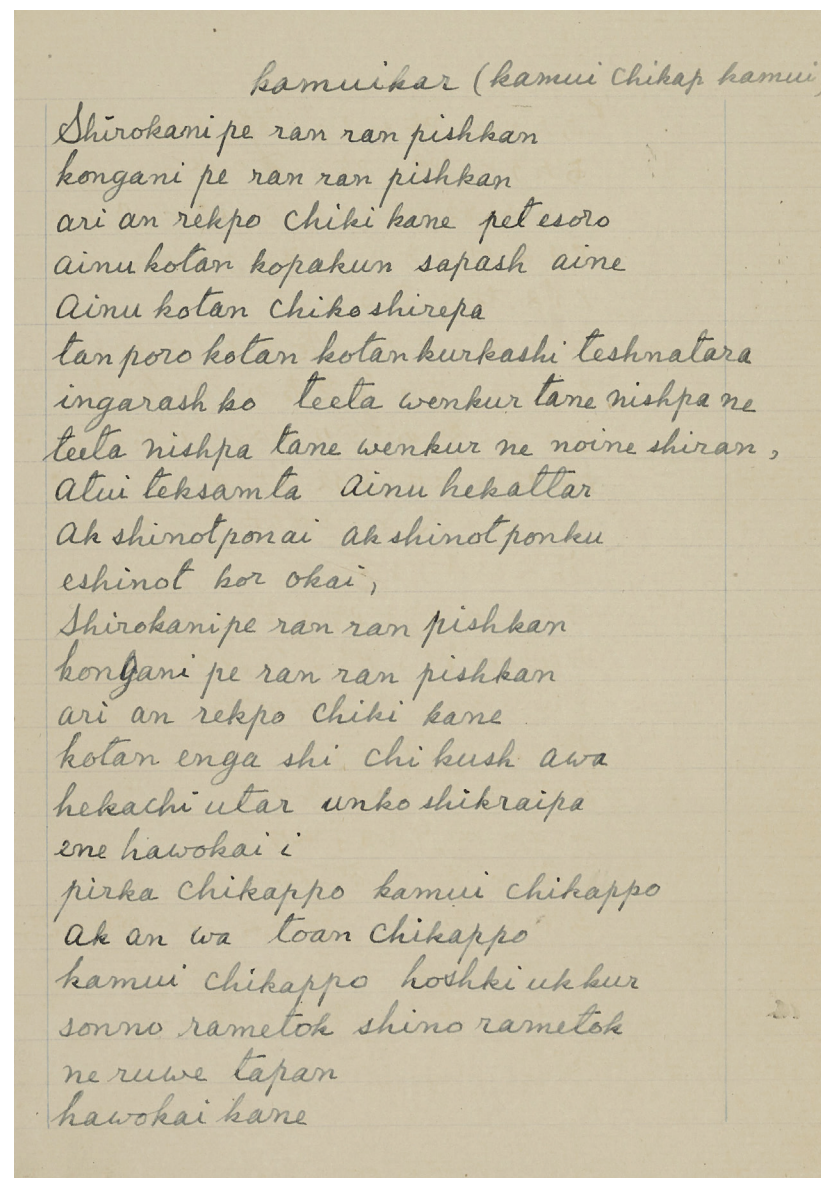 kamuikar (kamui chikap kamui)
Shirokani pe ran ran pishkan
kongani pe ran ran pishkan
ari an rekpo chiki kane pet esoro
ainu kotan kopakun sapash aine
Ainu kotan chikoshirepa
tan poro kotan kotan kurkashi teshnatara
ingarash ko teeta wenkur tane nishpa ne
teeta nishpa tane wenkur ne noine shiran,
Atui teksamta Ainu hekattar
Ak shinotponai ak shinotponku
eshinot kor okai,
Shirokanipe ran ran pishkan
kongani pe ran ran pishkan
ari an rekpo chiki kane
kotan enga shi chi kush awa
hekachi utar unko shikraipa
ene hawokai i
pirka chikappo kamui chikappo
Ak an wa toan chikappo
kamui chikappo hoshki ukkur
sonno rametok shino rametok
ne ruwe tapan
hawokai kane